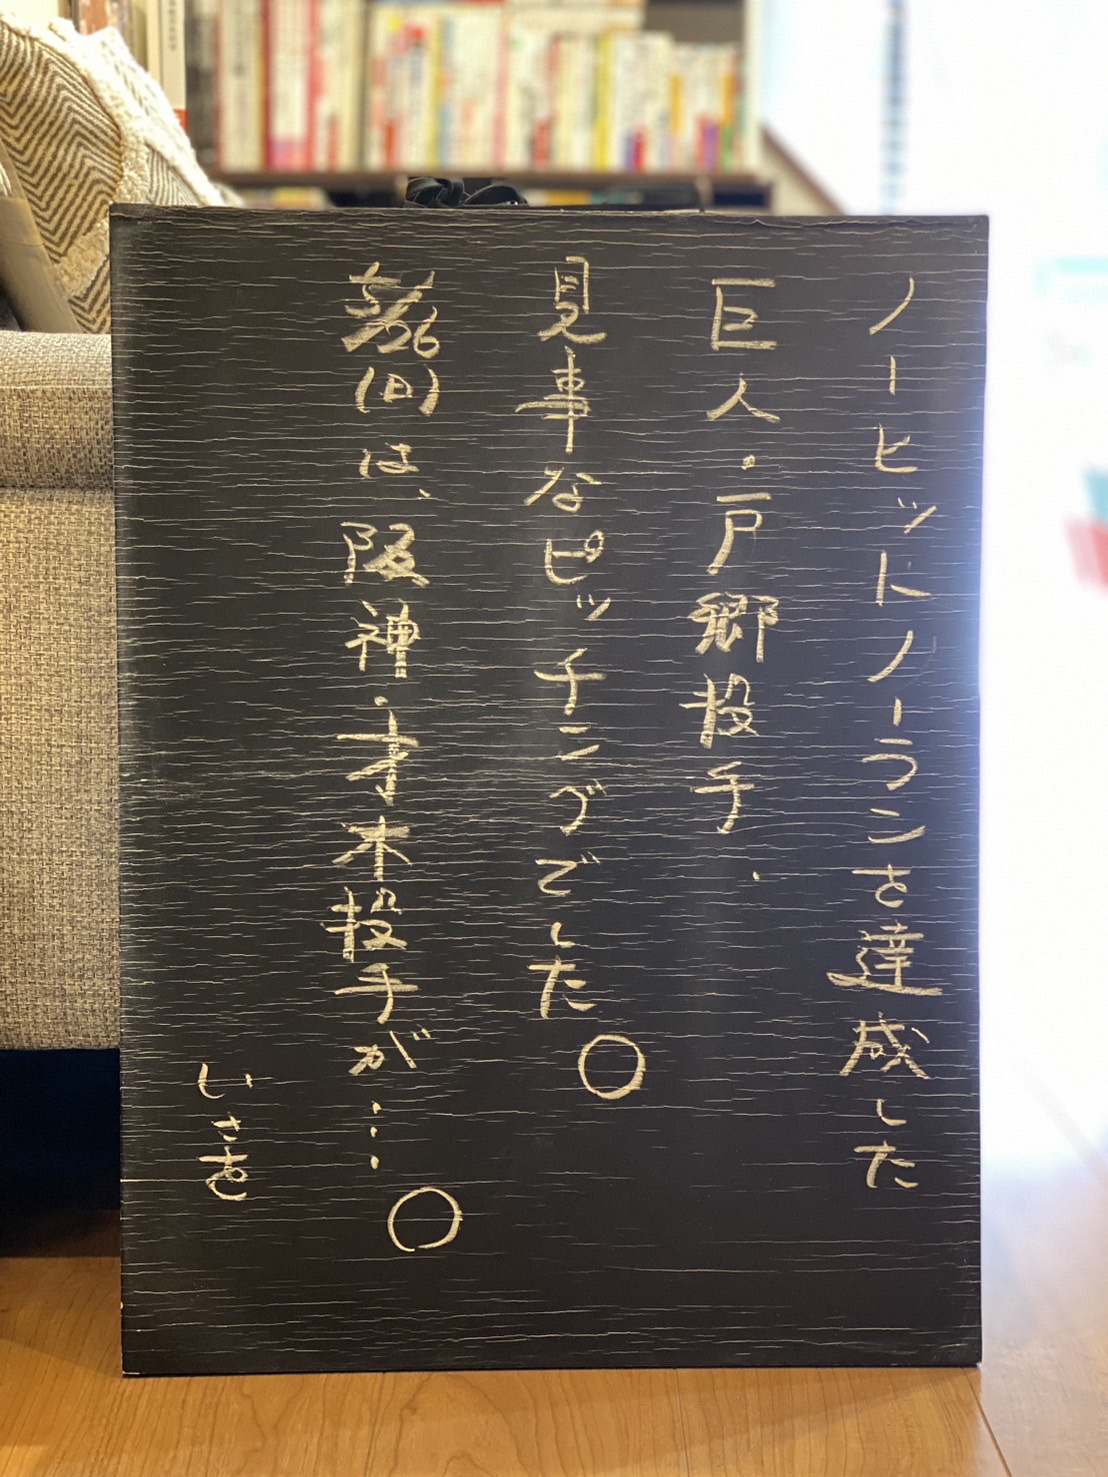 ノーヒットノーランを達成した
巨人・戸郷投手.
見事なピッチングでした〇
5/26(日)は、阪神・才木投手が…〇
いさを